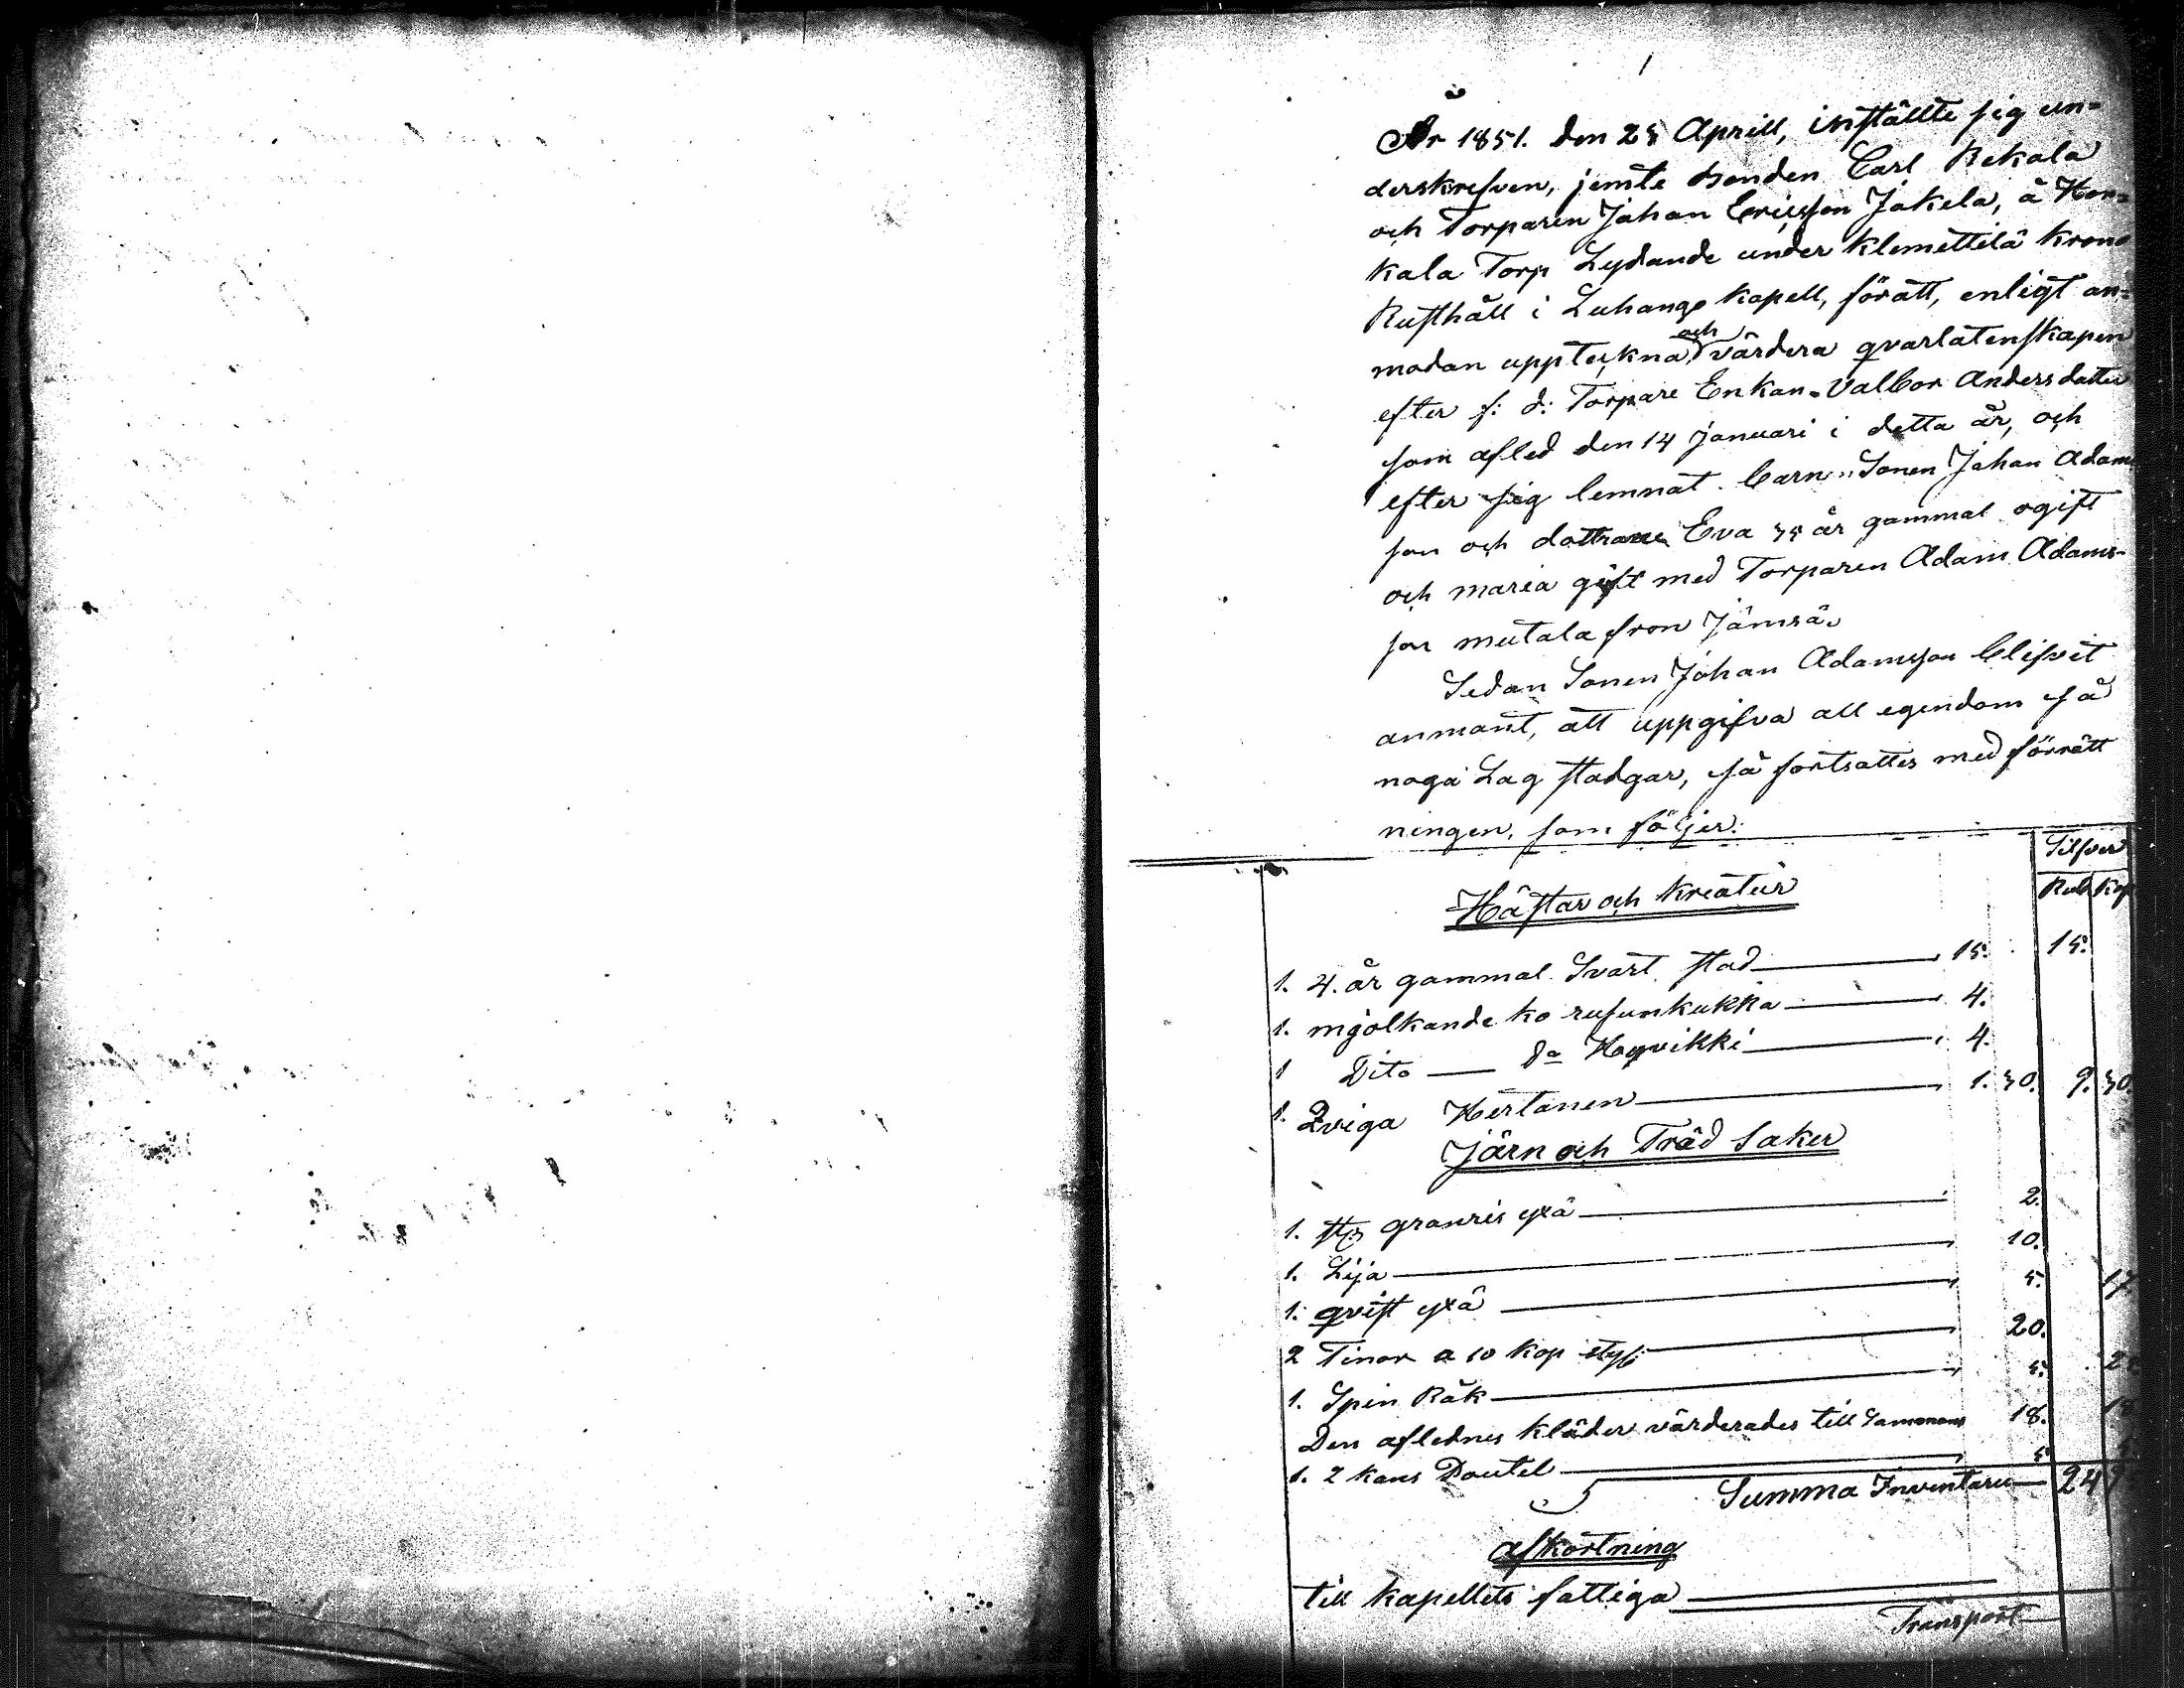 1
År 1851. den 23 Aprill, instállte sig un=
derskrefven, jemte bonden Carl Rekola
och Torparen Johan Ericsson Jakela, å Hor=
kala Torp Lydande under Klemettilä Krono
Rusthåll i Luhango Kapell,föratt, enligt an=
modan upptekna och värdera qvarlatenskapen
efter f: d: Torpare Enkan Valbor Andersdotter
som afled den 14 Januari i detta år, och
efter sig lemnat. barn: Sonen Johan Adam
son och dottrarne Eva 35 år gammal ogift
och Maria gift med Torparen Adam Adams-
son Mutala fron Jämsä.
Sedan Sonen Johan Adamsson blifvit
anmant, att uppgifva all egendom så
noga Lag stadgar, så fortsattes med förrätt
ningen, som följer:
Silfver
Rub Kop
Hästar och Kreatur
1. 4. år gammal Svart stod 15. 15.
1. mjölkande ko rusunkukka 4.
1 Dito — do Hoyvikki 4.
1. Qviga Hertanen 1. 30. 9. 30.
Järn och Träd Saker
1. st. granris yxä 2.
1. Lija 10.
1. qvist yxä 5. 17.
2 Tinor a 10 kop styk 20.
1. Spin Råk 5.
Den aflednes kläder värderades till Sammans 18.
1. 2 kans Boutel 5
Summa Inventarii 24
afkortning
till kapellets fattiga
Transport